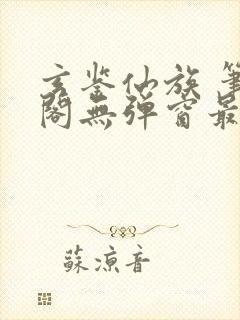 玄鉴仙族 筆
閣無彈窗最
蘇涼音